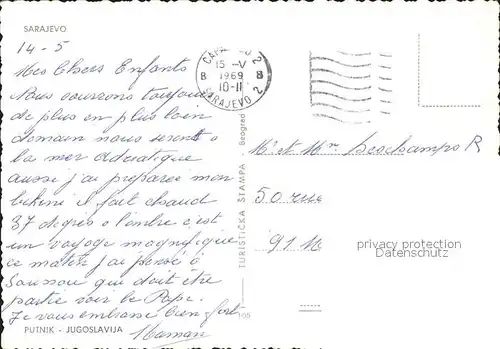 SARAJEVO
14-5
Mes Chers Enfants
Nous courrons toujours
de plus en plus loin
demain nous serons à
la mer adriatique
aussi j'ai préparée mon
bikini il fait chaud
37 degrés à l'ombre c'est
un voyage magnifique
ce matin j'ai pensé à
qui doit être
partie voir le Pape.
Je vous embrasse bien fort
Maman
PUTNIK - JUGOSLAVIJA
105
TURISTIČKA ŠTAMPA - Beograd
SARAJEVO 2
15 -V
1969
10-11
8 8
Mr et Mme Deschamps R
50 rue
91 M
privacy protection
Datenschutz